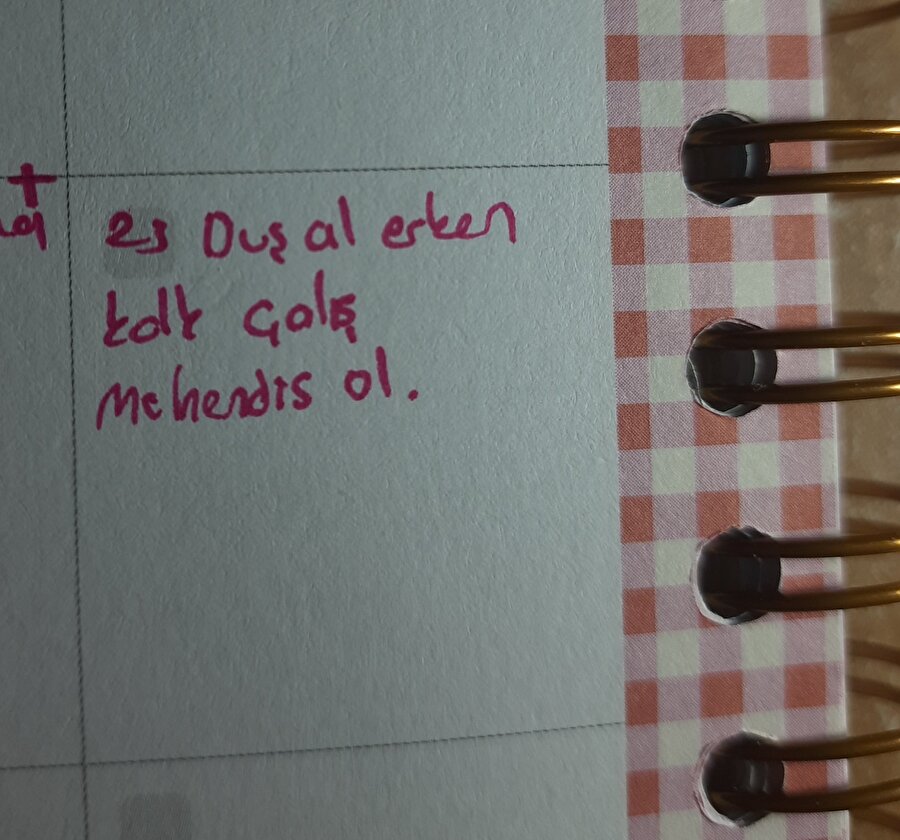 23 Duş al erken
kalk Çalış
Mehendis ol.